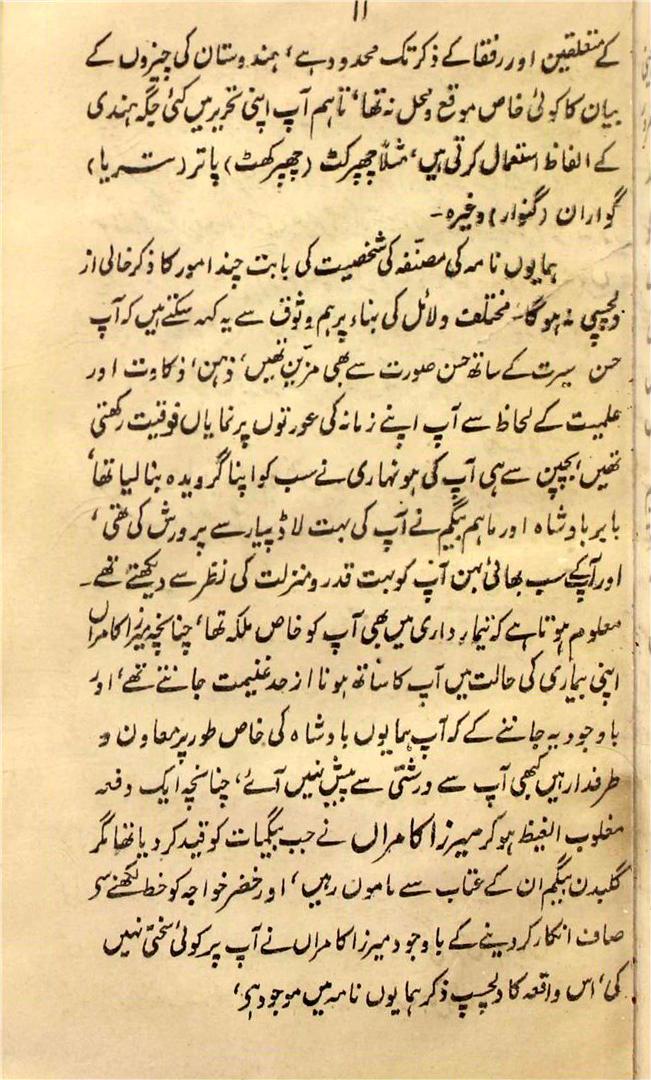 ۱۱
کے متعلقین اور رفقا کے ذکر تک محدود ہے، ہندوستان کی چیزوں کے
بیان کا کوئی خاص موقع و محل نہ تھا، تاہم آپ اپنی تحریر میں کئی جگہ ہندی
کے الفاظ استعمال کرتی ہیں، مثلاً چھپرکٹ (چھپرکھٹ) پاتر (تریا)
گواران (گنوار) وغیرہ۔
ہمایوں نامہ کی مصنّفہ کی شخصیت کی بابت چند امور کا ذکر خالی از
دلچسپی نہ ہوگا۔ مختلف دلائل کی بناء پر ہم وثوق سے یہ کہہ سکتے ہیں کہ آپ
حسن سیرت کے ساتھ حسن صورت سے بھی مزّین تھیں، ذہن، ذکاوت اور
علمیت کے لحاظ سے آپ اپنے زمانہ کی عورتوں پر نمایاں فوقیت رکھتی
تھیں، بچپن سے ہی آپ کی ہونہاری نے سب کو اپنا گرویدہ بنا لیا تھا،
بابر بادشاہ اور ماہم بیگم نے آپ کی بہت لاڈ پیار سے پرورش کی تھی،
اور آپ کے سب بھائی بہن آپ کو بہت قدر و منزلت کی نظر سے دیکھتے تھے۔
معلوم ہوتا ہے کہ تیمارداری میں بھی آپ کو خاص ملکہ تھا، چنانچہ میرزا کامراں
اپنی بیماری کی حالت میں آپ کا ساتھ ہونا از حد غنیمت جانتے تھے، اور
باوجود یہ جاننے کے کہ آپ ہمایوں بادشاہ کی خاص طور پر معاون و
طرفدار ہیں کبھی آپ سے درشتی سے پیش نہیں آئے، چنانچہ ایک دفعہ
مغلوب الغیظ ہو کر میرزا کامراں نے جب بیگمات کو قید کر دیا تھا مگر
گلبدن بیگم ان کے عتاب سے مامون رہیں، اور خضر خواجہ کو خط لکھنے سے
صاف انکار کر دینے کے باوجود میرزا کامراں نے آپ پر کوئی سختی نہیں
کی، اس واقعہ کا دلچسپ ذکر ہمایوں نامہ میں موجود ہے،